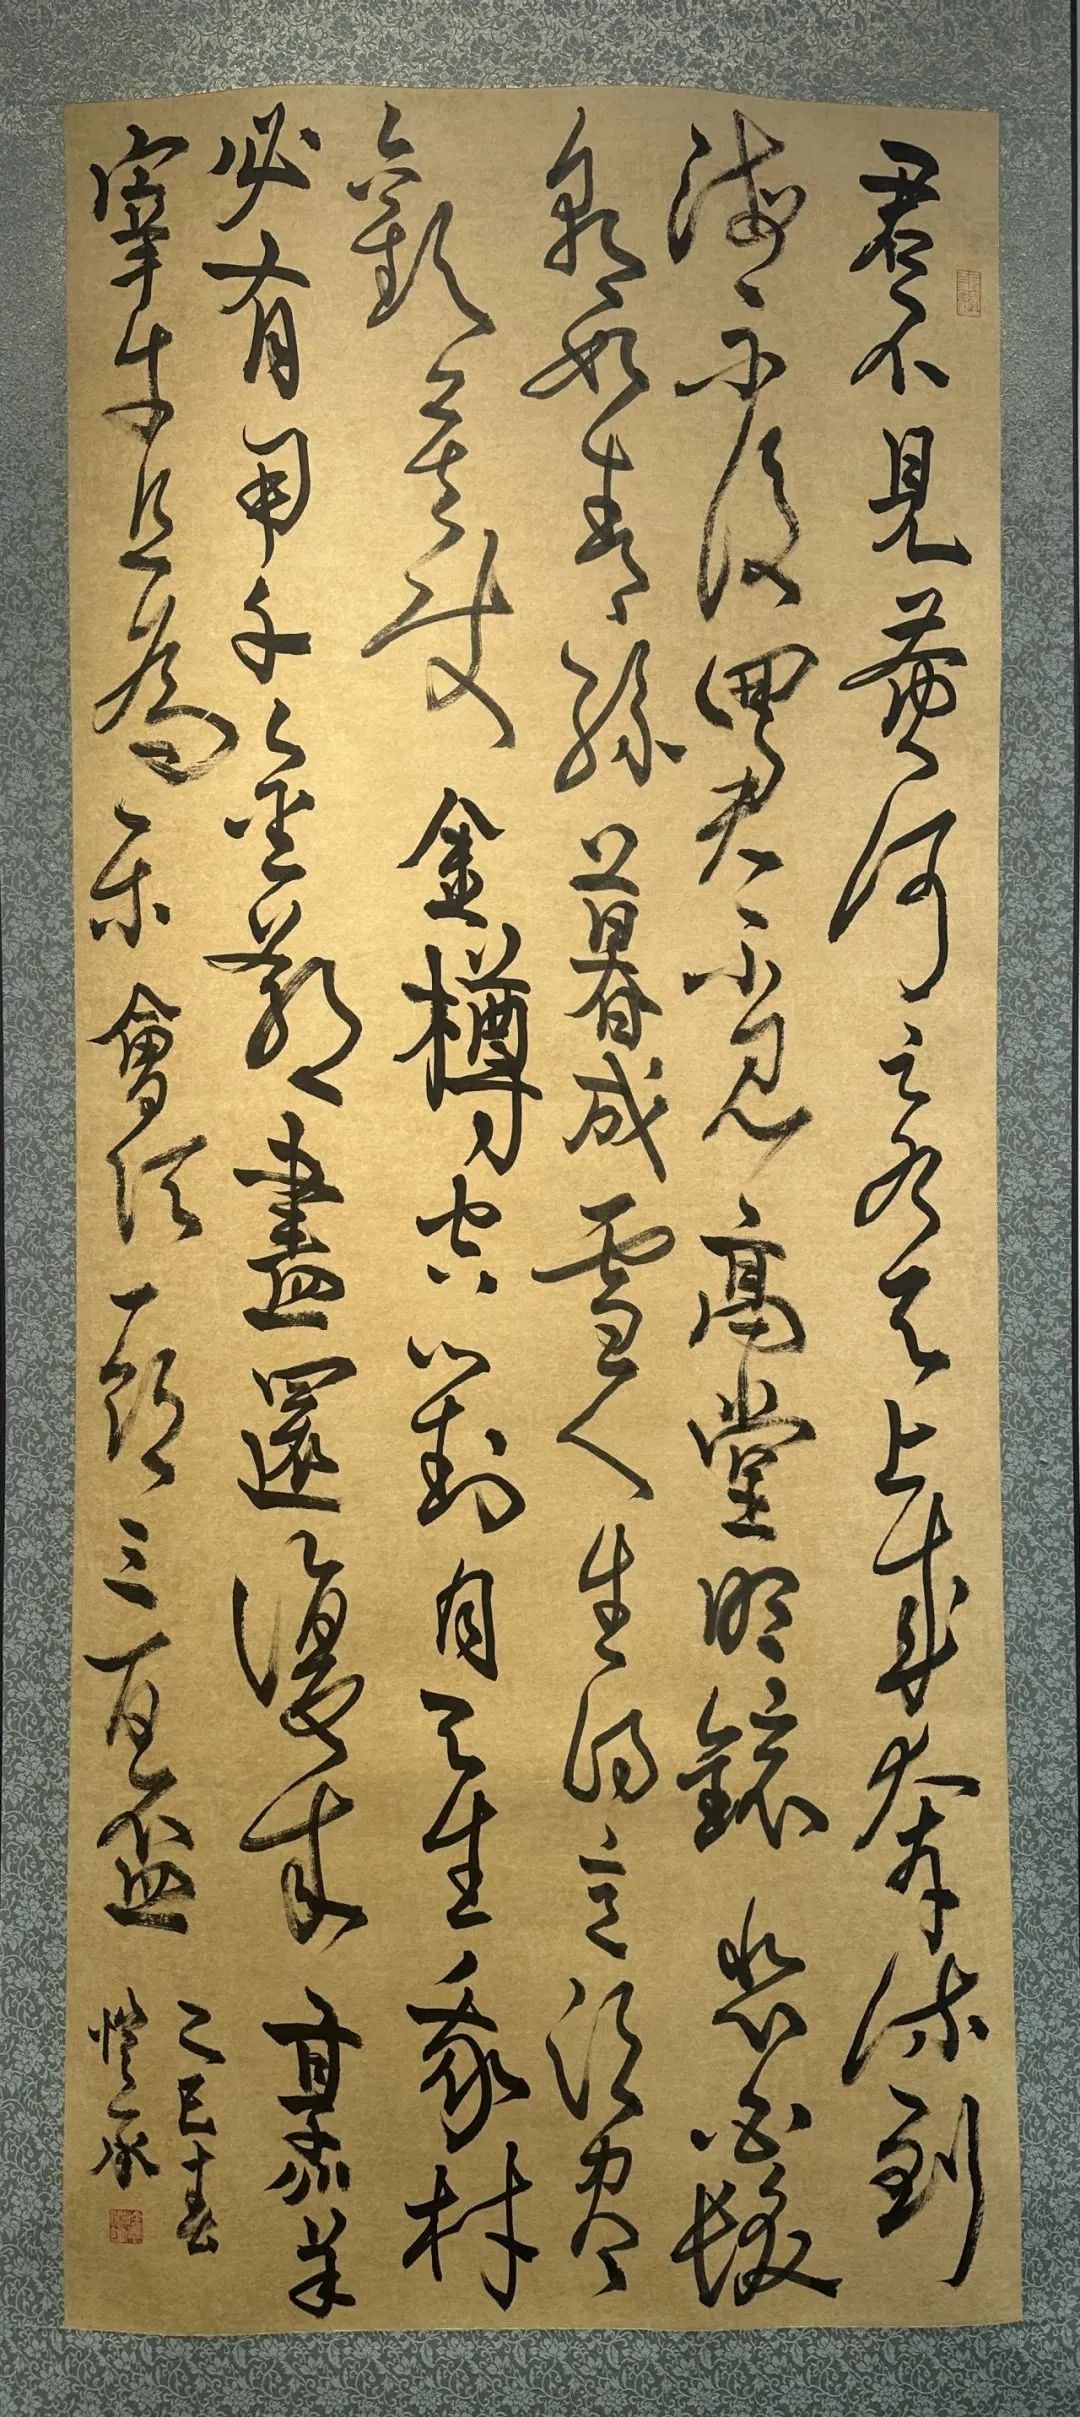 君不見黃河之水天上来奔流到
海不復回君不見高堂明鏡悲白髮
朝如青絲暮成雪人生得意須盡
歡莫使金樽空對月天生我材
必有用千金散盡還復来烹羊
宰牛且為樂會須一飲三百盃
乙巳春